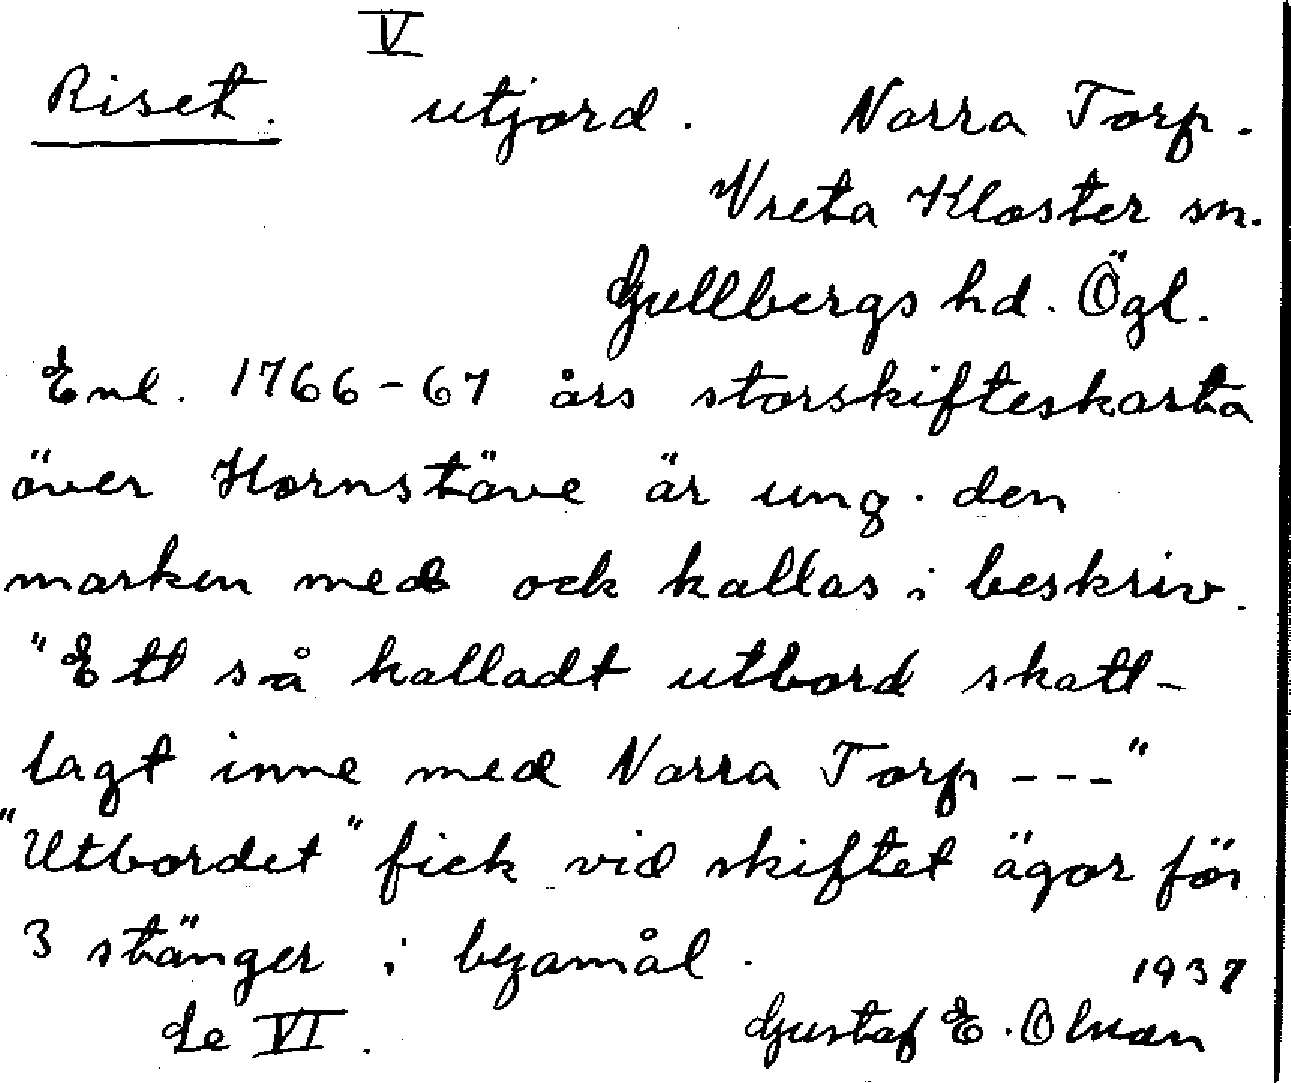 V
Riset. utjord. Norra Torp.
Vreta Kloster sn.
Gullbergs hd. Ögl.
Enl. 1766-67 års storskifteskarta
över Hornstäve är ung. den
marken med ock kallas i beskriv.
"Ett så kalladt utbord skatt-
lagt inne med Norra Torp ---"
"Utbordet" fick vid skiftet ägor för
3 stänger i byamål.
1937
Se VI. Gustaf E. Olman